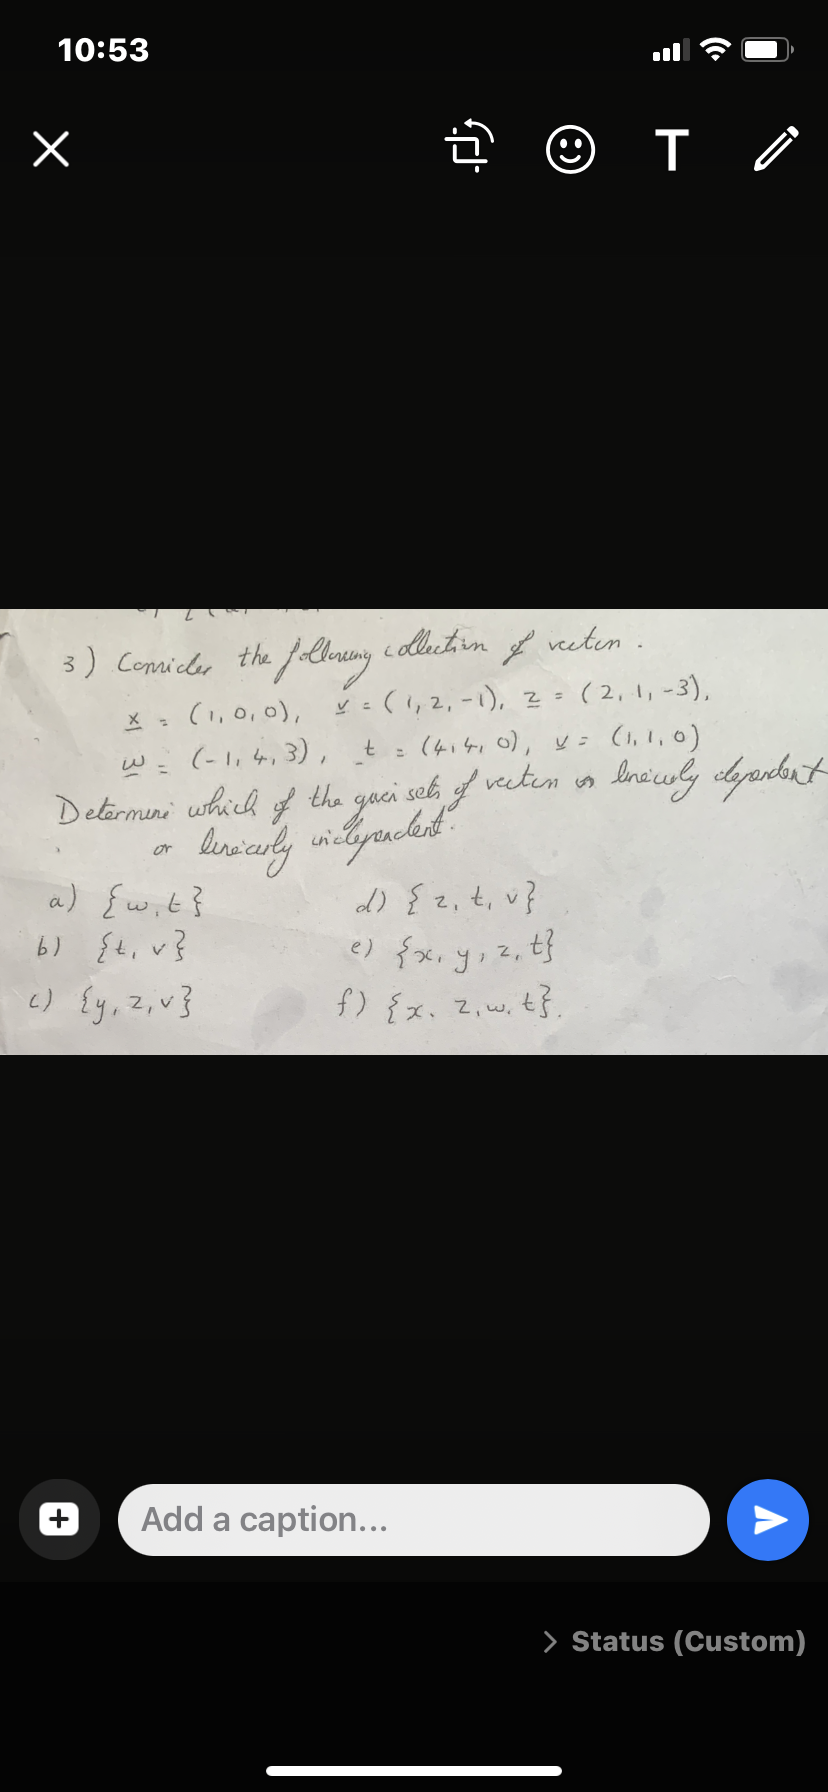 10:53
T
3) Consider the following collection of vectors.
x = (1,0,0), y = (1,2,-1), z = (2,1,-3),
w = (-1,4,3), t = (4,4,0), v = (1,1,0)
Determine which of the given sets of vectors is linearly dependent
or linearly independent.
a) {w,t}
b) {t, v}
c) {y,z,v}
d) {z,t,v}
e) {x,y,z,t}
f) {x,z,w,t}.
Add a caption...
> Status (Custom)